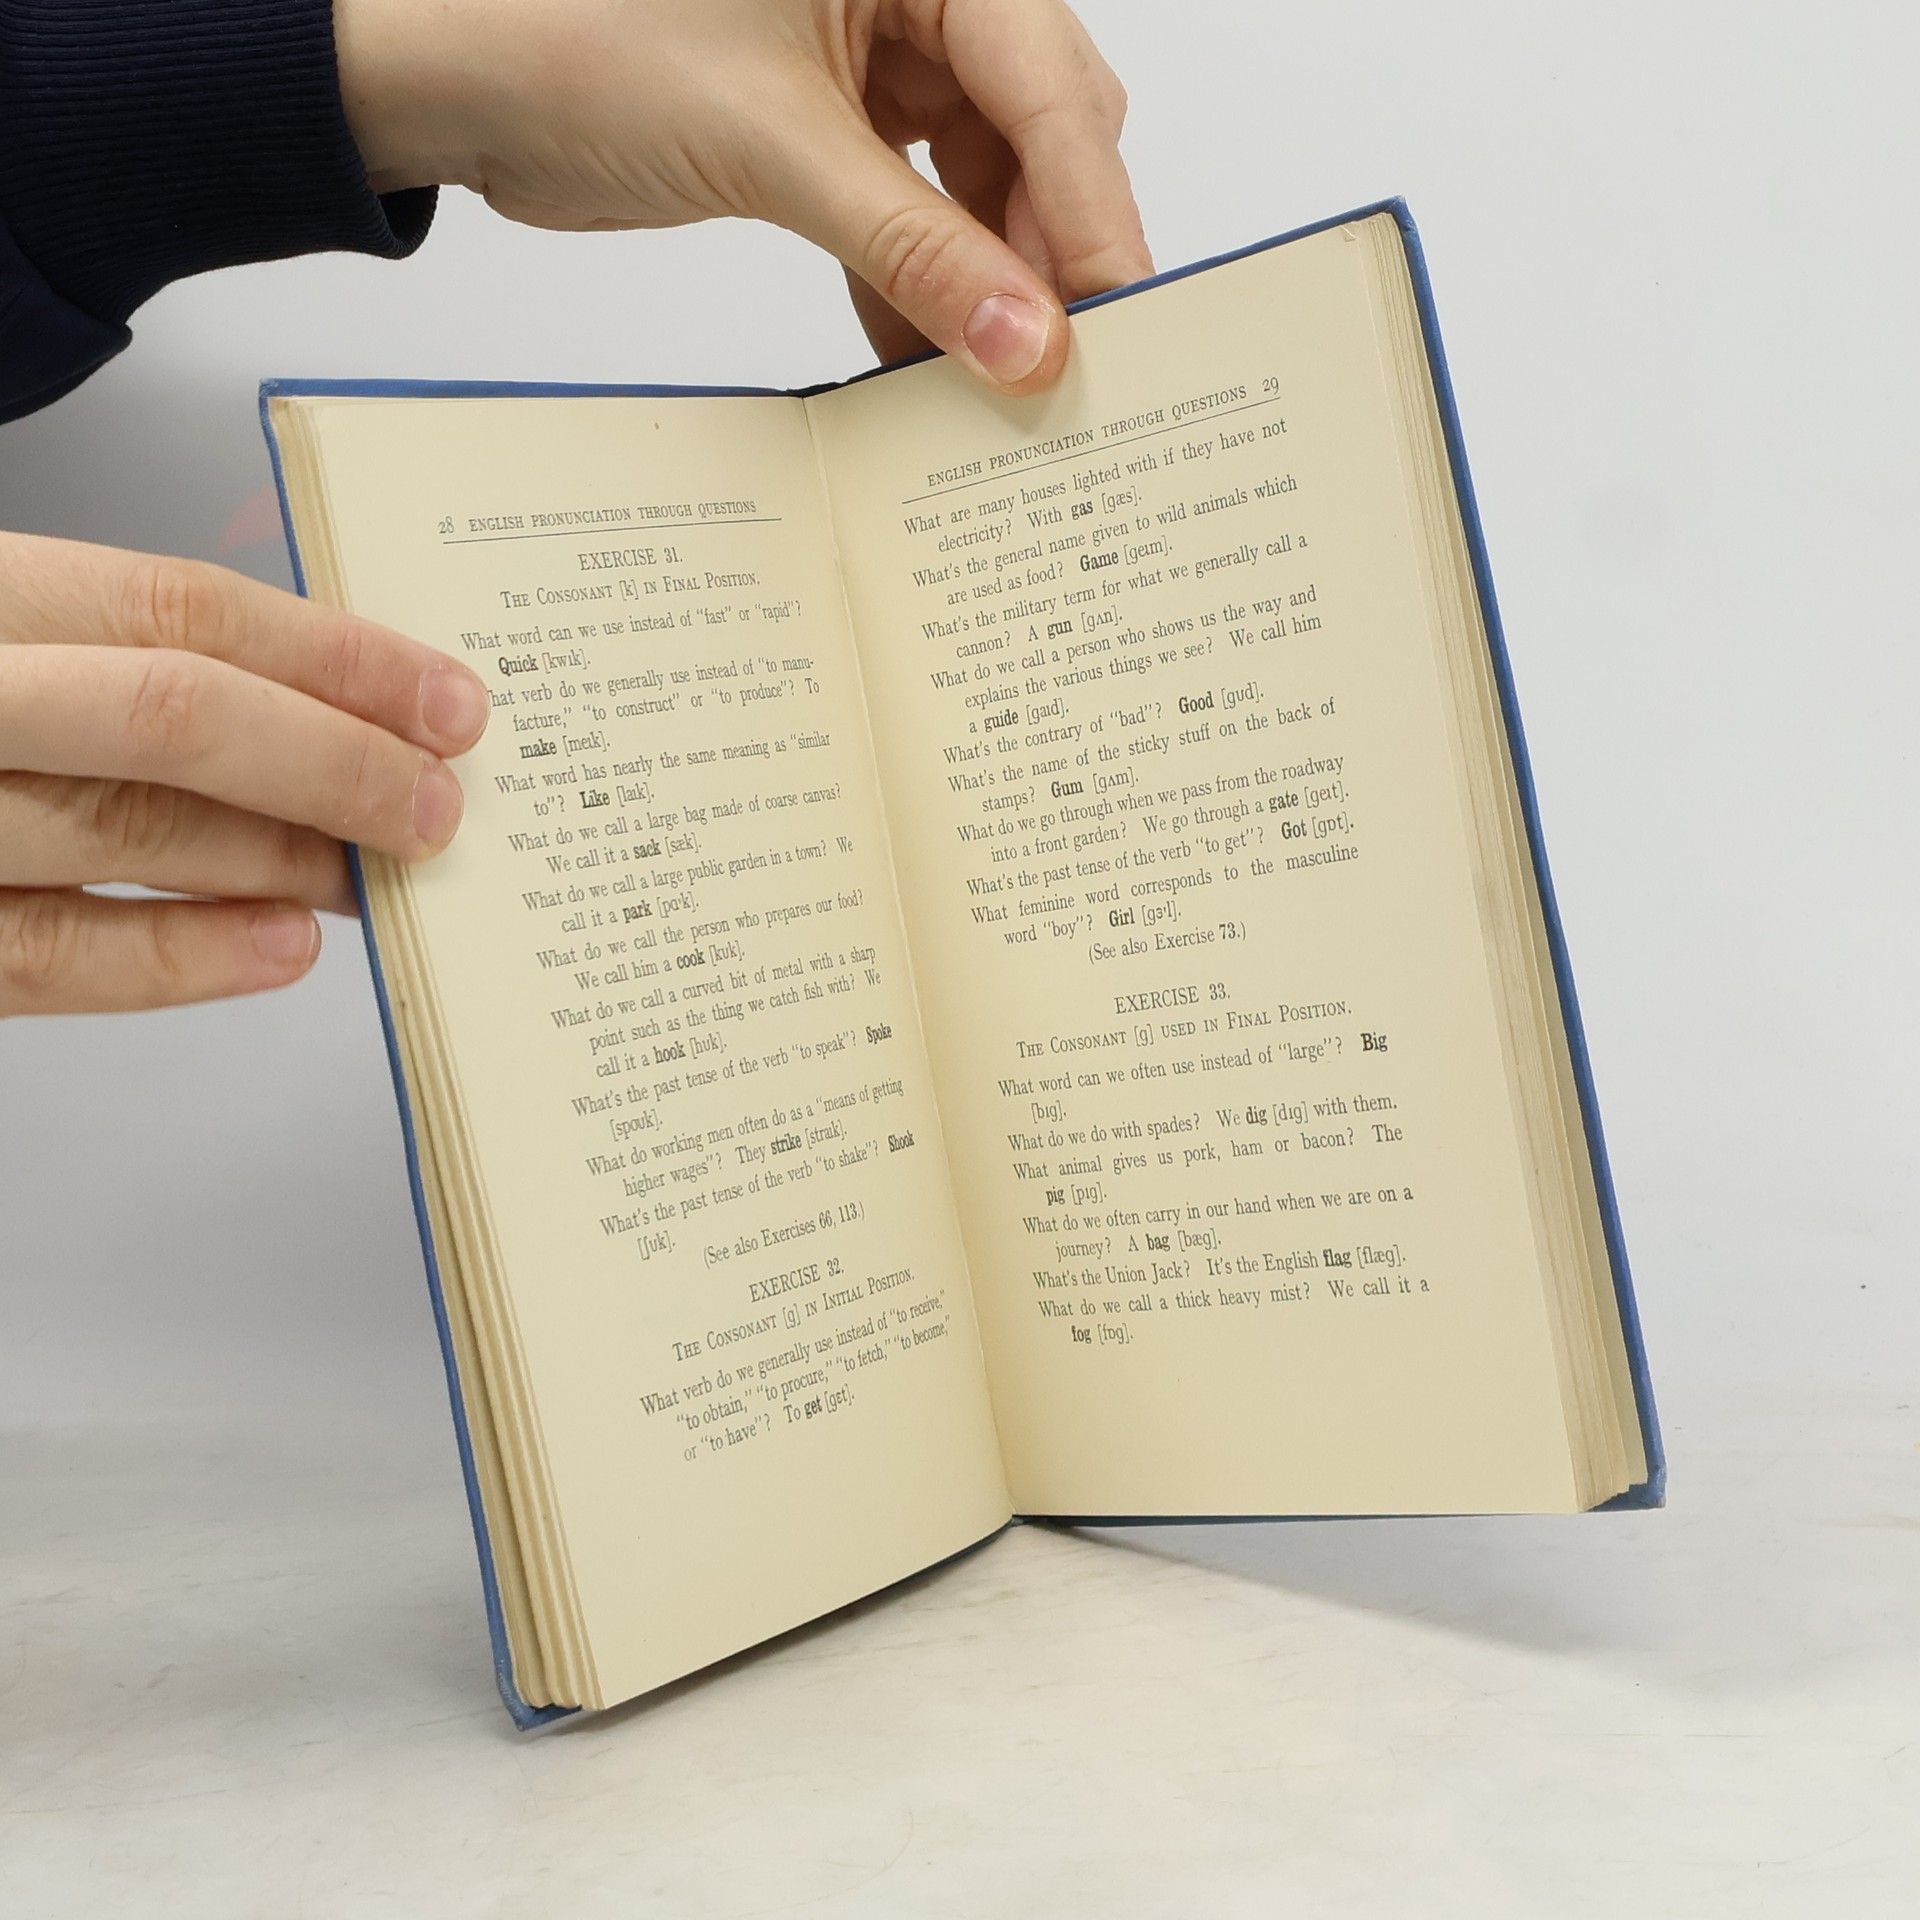 28 ENGLISH PRONUNCIATION THROUGH QUESTIONS
EXERCISE 31.
THE CONSONANT [k] IN FINAL POSITION.
What word can we use instead of “fast” or “rapid”?
Quick [kwɪk].
hat verb do we generally use instead of “to manu-
facture,” “to construct” or “to produce”? To
make [meɪk].
What word has nearly the same meaning as “similar
to”? Like [laɪk].
What do we call a large bag made of coarse canvas?
We call it a sack [sæk].
What do we call a large public garden in a town? We
call it a park [pɑ·k].
What do we call the person who prepares our food?
We call him a cook [kʊk].
What do we call a curved bit of metal with a sharp
point such as the thing we catch fish with? We
call it a hook [hʊk].
What's the past tense of the verb “to speak”? Spoke
[spoʊk].
What do working men often do as a “means of getting
higher wages”? They strike [straɪk].
What's the past tense of the verb “to shake”? Shook
[ʃʊk].
(See also Exercises 66, 113.)
EXERCISE 32.
THE CONSONANT [g] IN INITIAL POSITION.
What verb do we generally use instead of “to receive,”
“to obtain,” “to procure,” “to fetch,” “to become,”
or “to have”? To get [gɛt].
ENGLISH PRONUNCIATION THROUGH QUESTIONS 29
What are many houses lighted with if they have not
electricity? With gas [gæs].
What's the general name given to wild animals which
are used as food? Game [geɪm].
What's the military term for what we generally call a
cannon? A gun [gʌn].
What do we call a person who shows us the way and
explains the various things we see? We call him
a guide [gaɪd].
What's the contrary of “bad”? Good [gʊd].
What's the name of the sticky stuff on the back of
stamps? Gum [gʌm].
What do we go through when we pass from the roadway
into a front garden? We go through a gate [geɪt].
What's the past tense of the verb “to get”? Got [gɒt].
What feminine word corresponds to the masculine
word “boy”? Girl [gɜ·l].
(See also Exercise 73.)
EXERCISE 33.
THE CONSONANT [g] USED IN FINAL POSITION.
What word can we often use instead of “large”? Big
[bɪg].
What do we do with spades? We dig [dɪg] with them.
What animal gives us pork, ham or bacon? The
pig [pɪg].
What do we often carry in our hand when we are on a
journey? A bag [bæg].
What's the Union Jack? It's the English flag [flæg].
What do we call a thick heavy mist? We call it a
fog [fɒg].